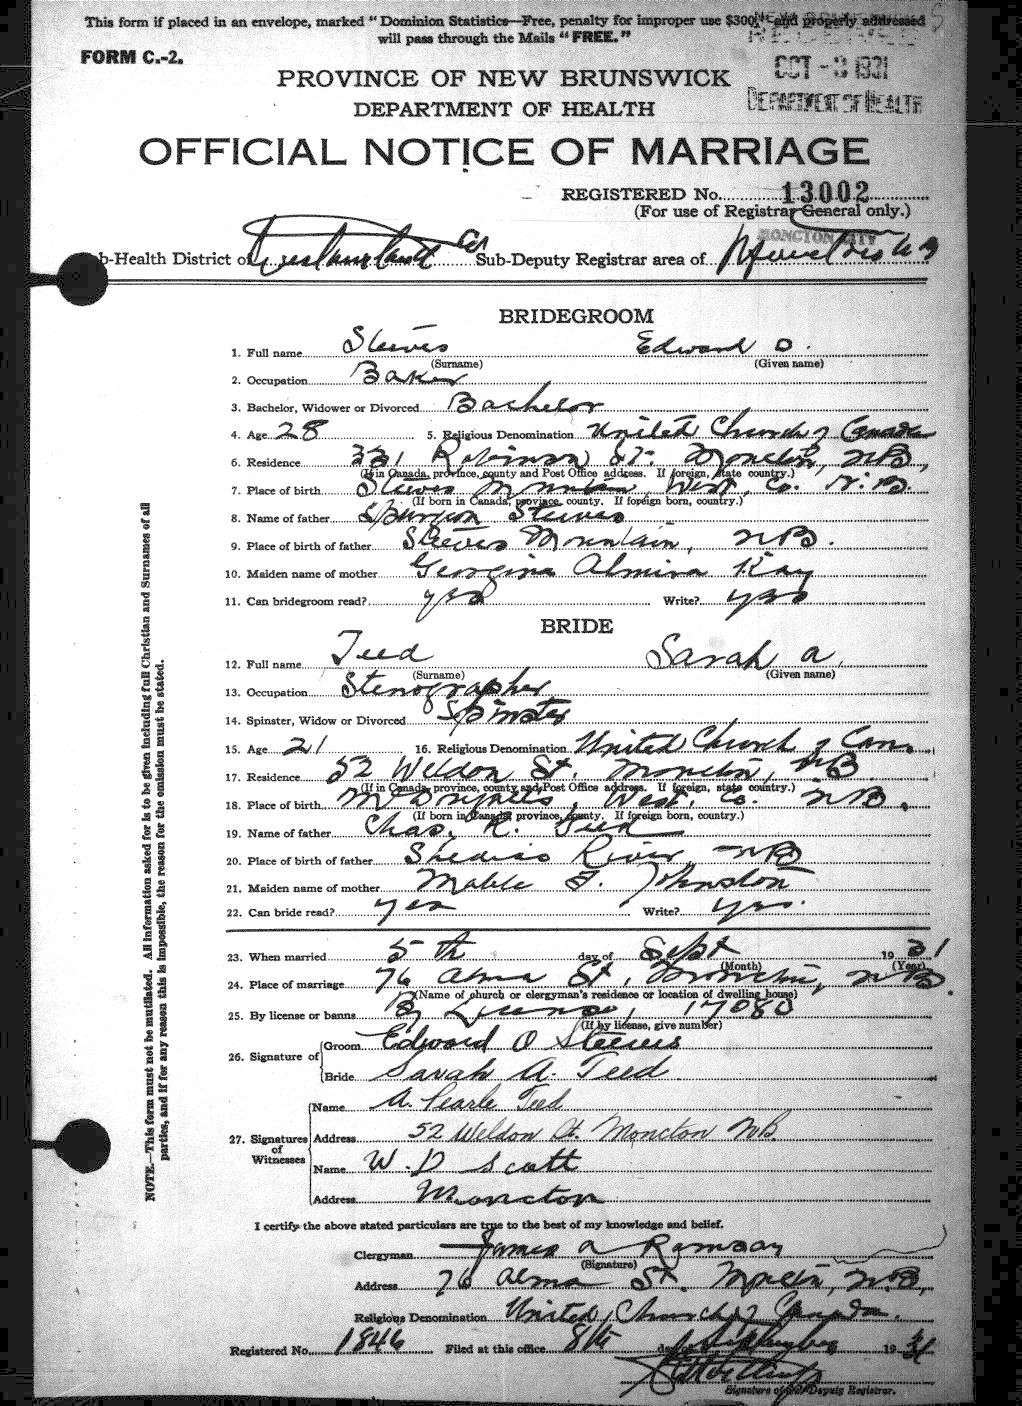 This form if placed in an envelope, marked "Dominion Statistics—Free, penalty for improper use $300," and properly addressed
will pass through the Mails "FREE."
FORM C.-2.
OCT - 3 1931
DEPARTMENT OF HEALTH
PROVINCE OF NEW BRUNSWICK
DEPARTMENT OF HEALTH
OFFICIAL NOTICE OF MARRIAGE
REGISTERED No. 13002
(For use of Registrar General only.)
MONCTON CITY
b-Health District of Westmorland Co Sub-Deputy Registrar area of
BRIDEGROOM
1. Full name Steeves Edward O.
(Surname) (Given name)
2. Occupation Baker
3. Bachelor, Widower or Divorced Bachelor
4. Age 28 5. Religious Denomination United Church of Canada
6. Residence 331 Robinson St. Moncton, N.B.,
(If in Canada, province, county and Post Office address. If foreign, state country.)
7. Place of birth Steeves Mountain West. Co. N.B.
(If born in Canada, province, county. If foreign born, country.)
8. Name of father Spurgeon Steeves
9. Place of birth of father Steeves Mountain, N.B.
10. Maiden name of mother Georgina Almira Kay
11. Can bridegroom read? yes Write? yes
BRIDE
12. Full name Teed Sarah A.
(Surname) (Given name)
13. Occupation Stenographer
14. Spinster, Widow or Divorced Spinster
15. Age 21 16. Religious Denomination United Church of Can.
17. Residence 52 Weldon St. Moncton, N.B.
(If in Canada, province, county and Post Office address. If foreign, state country.)
18. Place of birth McDougalls, West. Co. N.B.
(If born in Canada, province, county. If foreign born, country.)
19. Name of father Chas. R. Teed
20. Place of birth of father Shediac River, N.B.
21. Maiden name of mother Mable F. Johnston
22. Can bride read? yes Write? yes.
23. When married 5th day of Sept 1931
(Month) (Year)
24. Place of marriage 76 Alma St, Moncton, N.B.
(Name of church or clergyman's residence or location of dwelling house)
25. By license or banns By License, 17080
(If by license, give number)
26. Signature of Groom Edward O Steeves
Bride Sarah A. Teed
27. Signatures of Witnesses Name A. Pearle Teed
Address 52 Weldon St. Moncton N.B.
Name W. D Scott
Address Moncton
I certify the above stated particulars are true to the best of my knowledge and belief.
Clergyman James A Ramsay
(Signature)
Address 76 Alma St. Moncton, N.B.,
Religious Denomination United Church of Canada.
Registered No. 1846 Filed at this office 8th day of September 1931
Signature of Sub-Deputy Registrar.
NOTE.—This form must not be mutilated. All information asked for is to be given including full Christian and Surnames of all
parties, and if for any reason this is impossible, the reason for the omission must be stated.